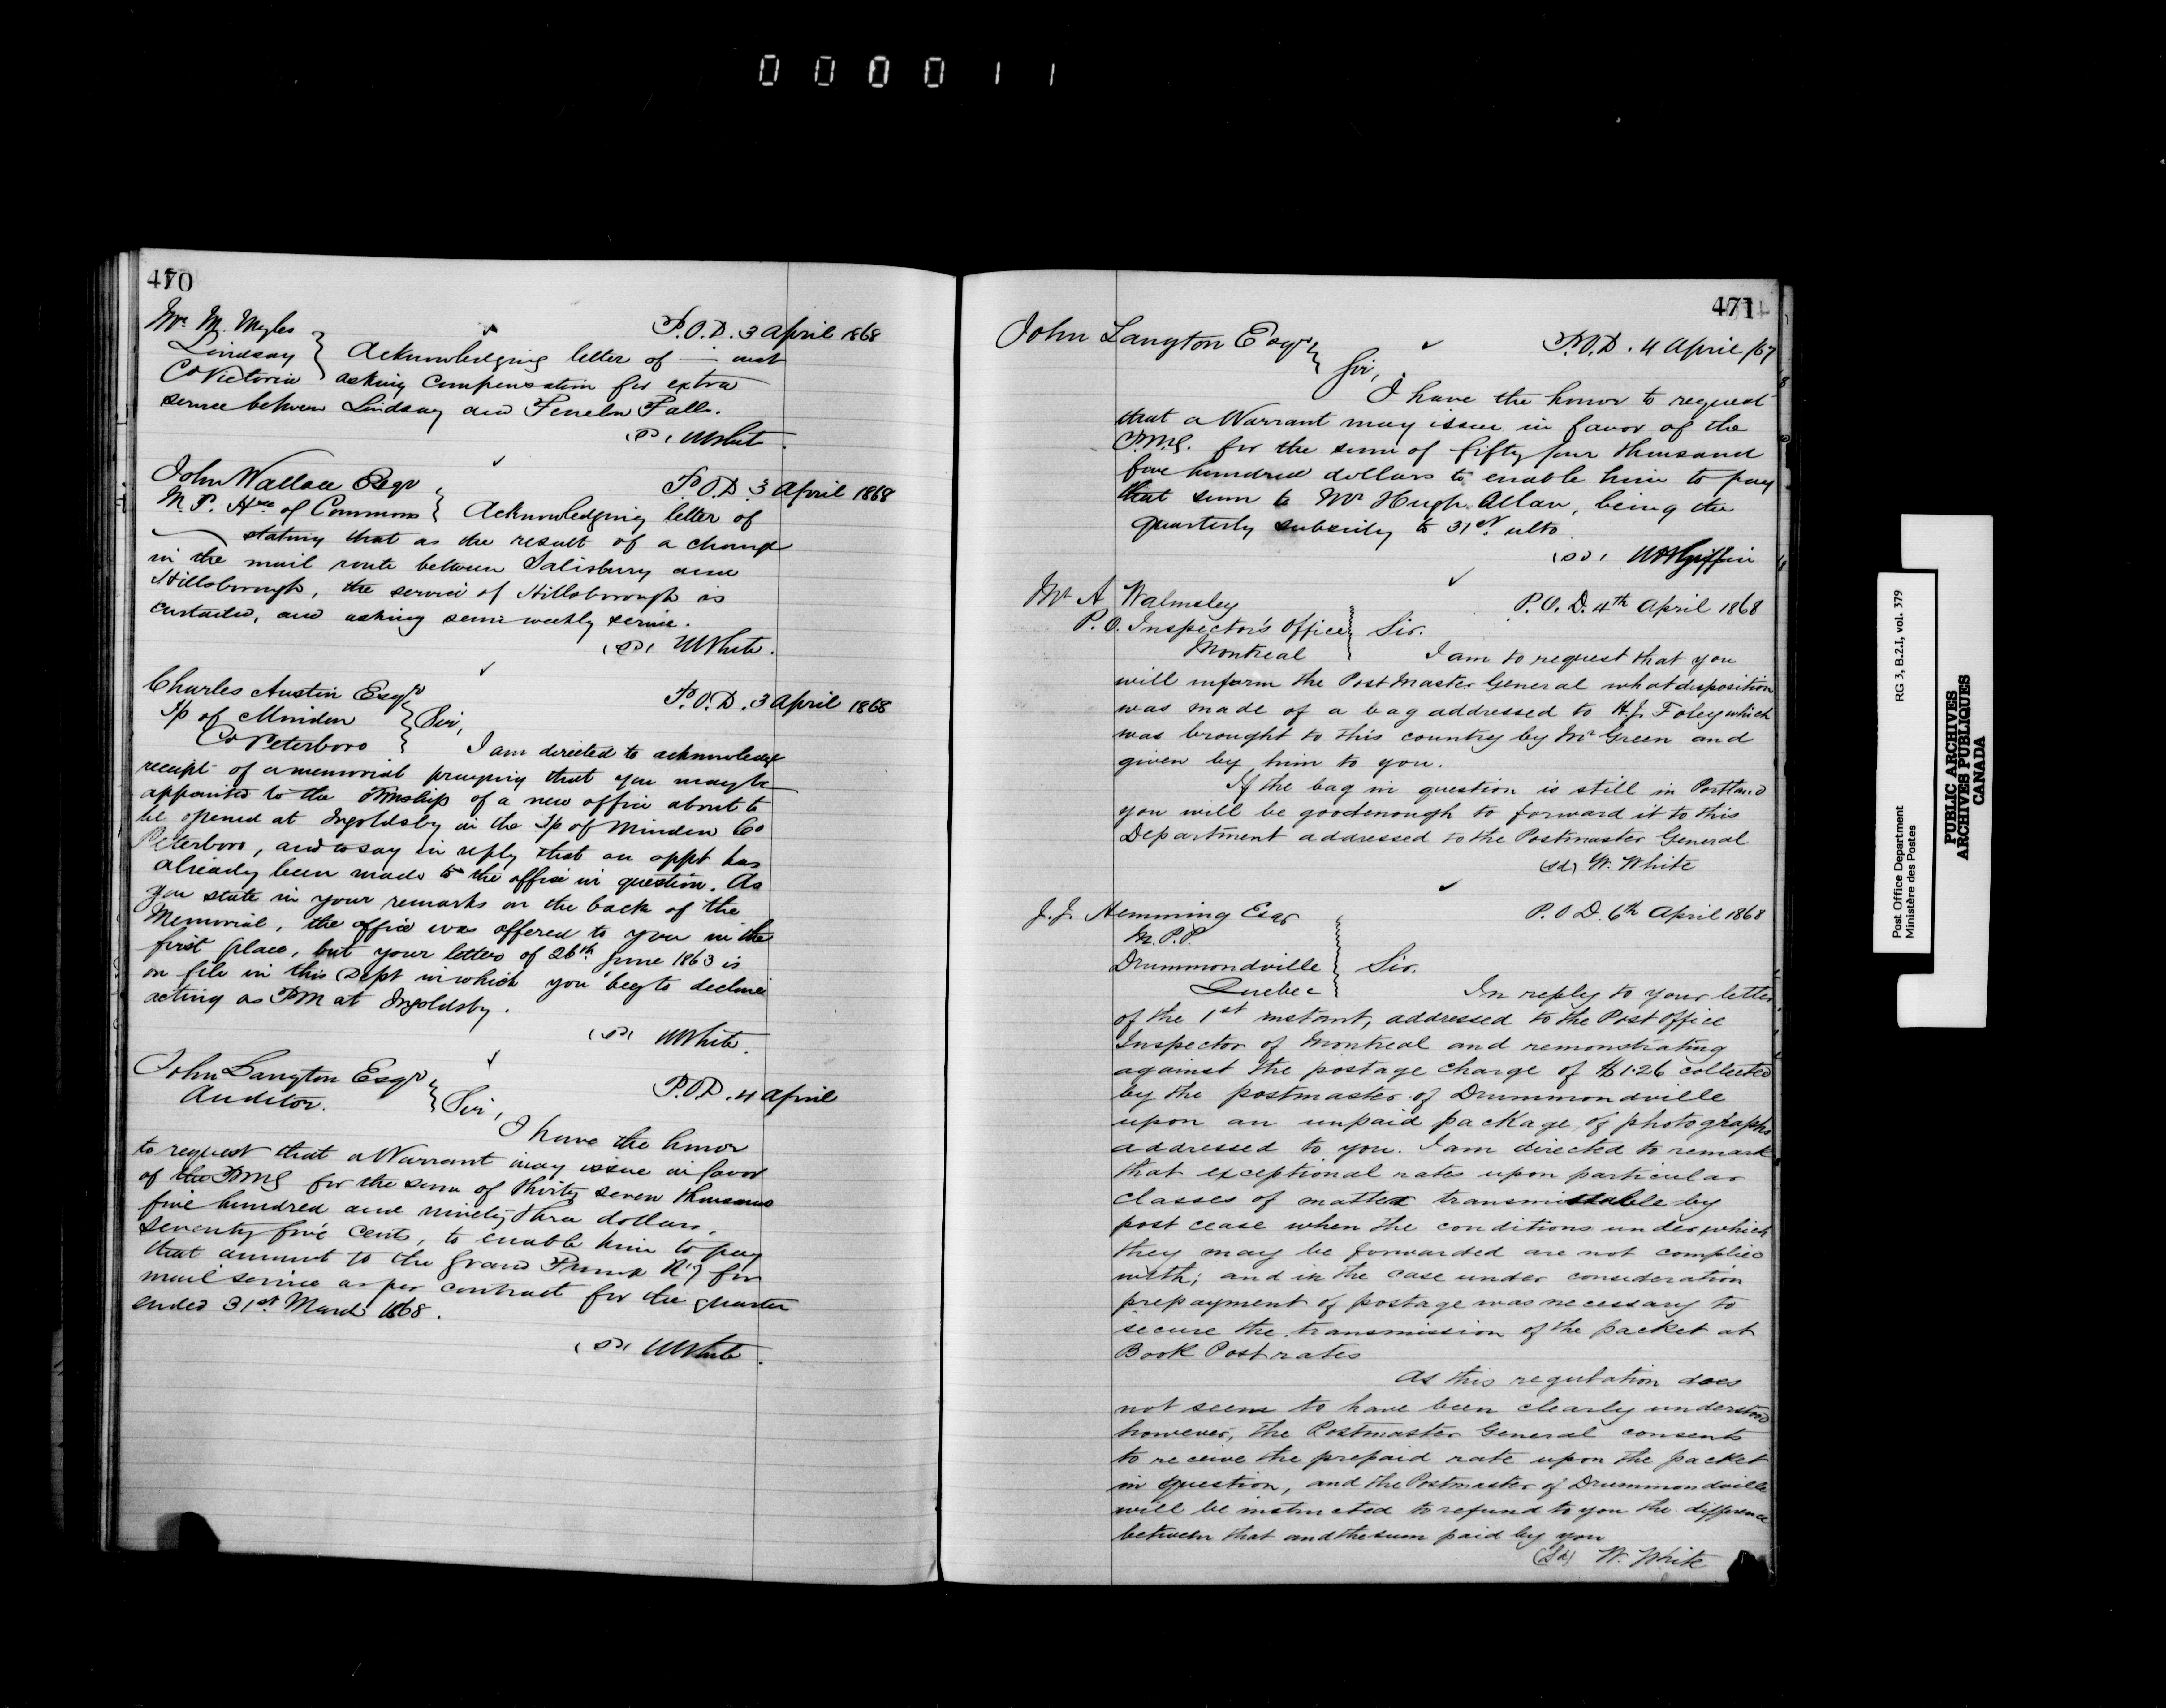 000011
470
Mr. M. Myles
P.O.D. 3 April 1868
Lindsay
Co Victoria
Acknowledging letter of — inst
asking compensation for extra
service between Lindsay and Fenelon Falls.
(sd) W White
John Wallace Esqr
P.O.D. 3 April 1868
M.P. Hse of Commons
Acknowledging letter of
stating that as the result of a change
in the mail route between Salisbury and
Hillsborough, the service of Hillsborough is
curtailed, and asking semi weekly service.
(sd) W White.
Charles Austin Esqr
P.O.D. 3 April 1868
Tp of Minden
Sir,
Co Peterboro
I am directed to acknowledge
receipt of a memorial praying that you may be
appointed to the PMship of a new office about to
be opened at Ingoldsby in the Tp of Minden Co
Peterboro, and to say in reply that an appt has
already been made to the office in question. As
you state in your remarks on the back of the
Memorial, the office was offered to you in the
first place, but your letter of 26th June 1863 is
on file in this Dept in which you beg to decline
acting as PM at Ingoldsby.
(sd) W White.
John Langton Esqr
P.O.D. 4 April
Auditor.
Sir,
I have the honor
to request that a Warrant may issue in favor
of the PMG for the sum of thirty seven thousand
five hundred and ninety three dollars,
seventy five cents, to enable him to pay
that amount to the Grand Trunk Ry for
mail service as per contract for the quarter
ended 31st March 1868.
(sd) W White.
471
John Langton Esqr
P.O.D. 4 April /67
Sir,
I have the honor to request
that a Warrant may issue in favor of the
P.M.G. for the sum of fifty four thousand
five hundred dollars to enable him to pay
that sum to Mr Hugh Allan, being the
quarterly subsidy to 31st ulto
(sd) W H Griffin
Mr A Walmsley
P.O.D. 4th April 1868
P.O. Inspector's Office
Sir.
Montreal
I am to request that you
will inform the Post Master General what disposition
was made of a bag addressed to H.J. Foley which
was brought to this country by Mr Green and
given by him to you.
If the bag in question is still in Portland
you will be good enough to forward it to this
Department addressed to the Postmaster General
(sd) W. White
J.J. Hemming Esqr
P.O.D. 6th April 1868
M.P.P.
Drummondville
Sir.
Quebec
In reply to your letter
of the 1st instant, addressed to the Post Office
Inspector of Montreal and remonstrating
against the postage charge of $1.26 collected
by the postmaster of Drummondville
upon an unpaid package of photographs
addressed to you. I am directed to remark
that exceptional rates upon particular
classes of matter transmissible by
post cease when the conditions under which
they may be forwarded are not complied
with; and in the case under consideration
prepayment of postage was necessary to
secure the transmission of the packet at
Book Post rates
As this regulation does
not seem to have been clearly understood
however, the Postmaster General consents
to receive the prepaid rate upon the packet
in question, and the Postmaster of Drummondville
will be instructed to refund to you the difference
between that and the sum paid by you
(Sd) W. White
Post Office Department
Ministère des Postes
RG 3, B.2.I, vol. 379
PUBLIC ARCHIVES
ARCHIVES PUBLIQUES
CANADA